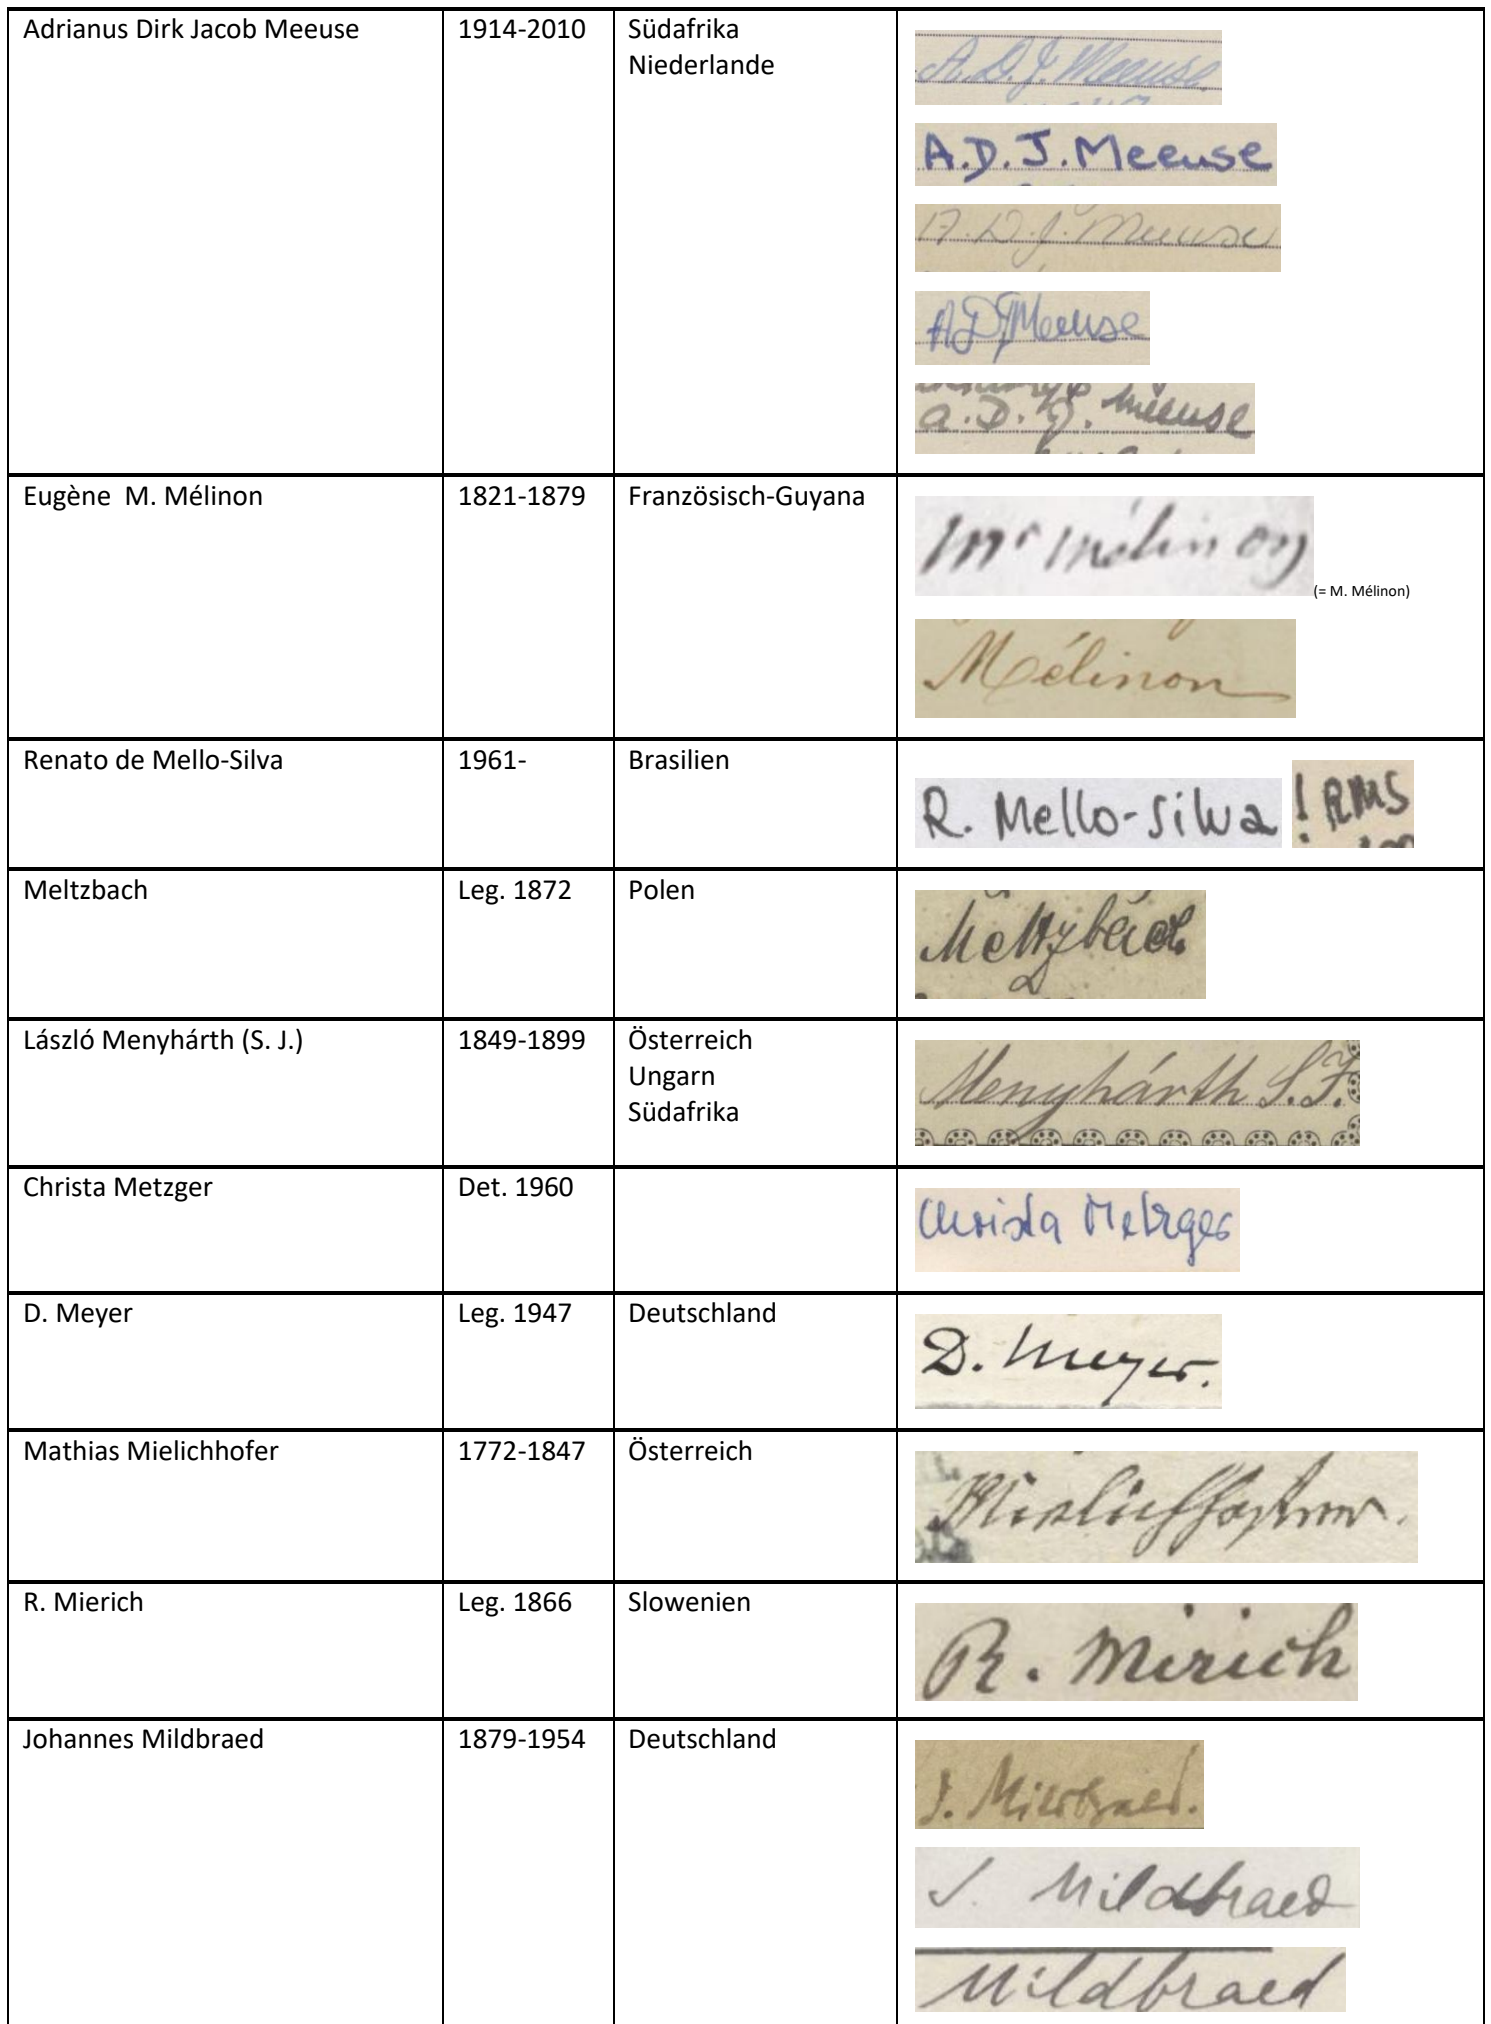 Adrianus Dirk Jacob Meeuse 1914-2010 Südafrika
Niederlande
A. D. J. Meeuse.
A.D.J. Meeuse
A. D. J. Meeuse
ADJMeeuse
a. D. J. Meeuse
Eugène M. Mélinon 1821-1879 Französisch-Guyana
Mr Mélinon (= M. Mélinon)
Mélinon
Renato de Mello-Silva 1961- Brasilien
R. Mello-Silva ! RMS
Meltzbach Leg. 1872 Polen
Meltzbach
László Menyhárth (S. J.) 1849-1899 Österreich
Ungarn
Südafrika
Menyhárth S. J.
Christa Metzger Det. 1960
Christa Metzger
D. Meyer Leg. 1947 Deutschland
D. Meyer.
Mathias Mielichhofer 1772-1847 Österreich
Mielichhofer.
R. Mierich Leg. 1866 Slowenien
R. Mirich
Johannes Mildbraed 1879-1954 Deutschland
J. Mildbraed.
J. Mildbraed
Mildbraed